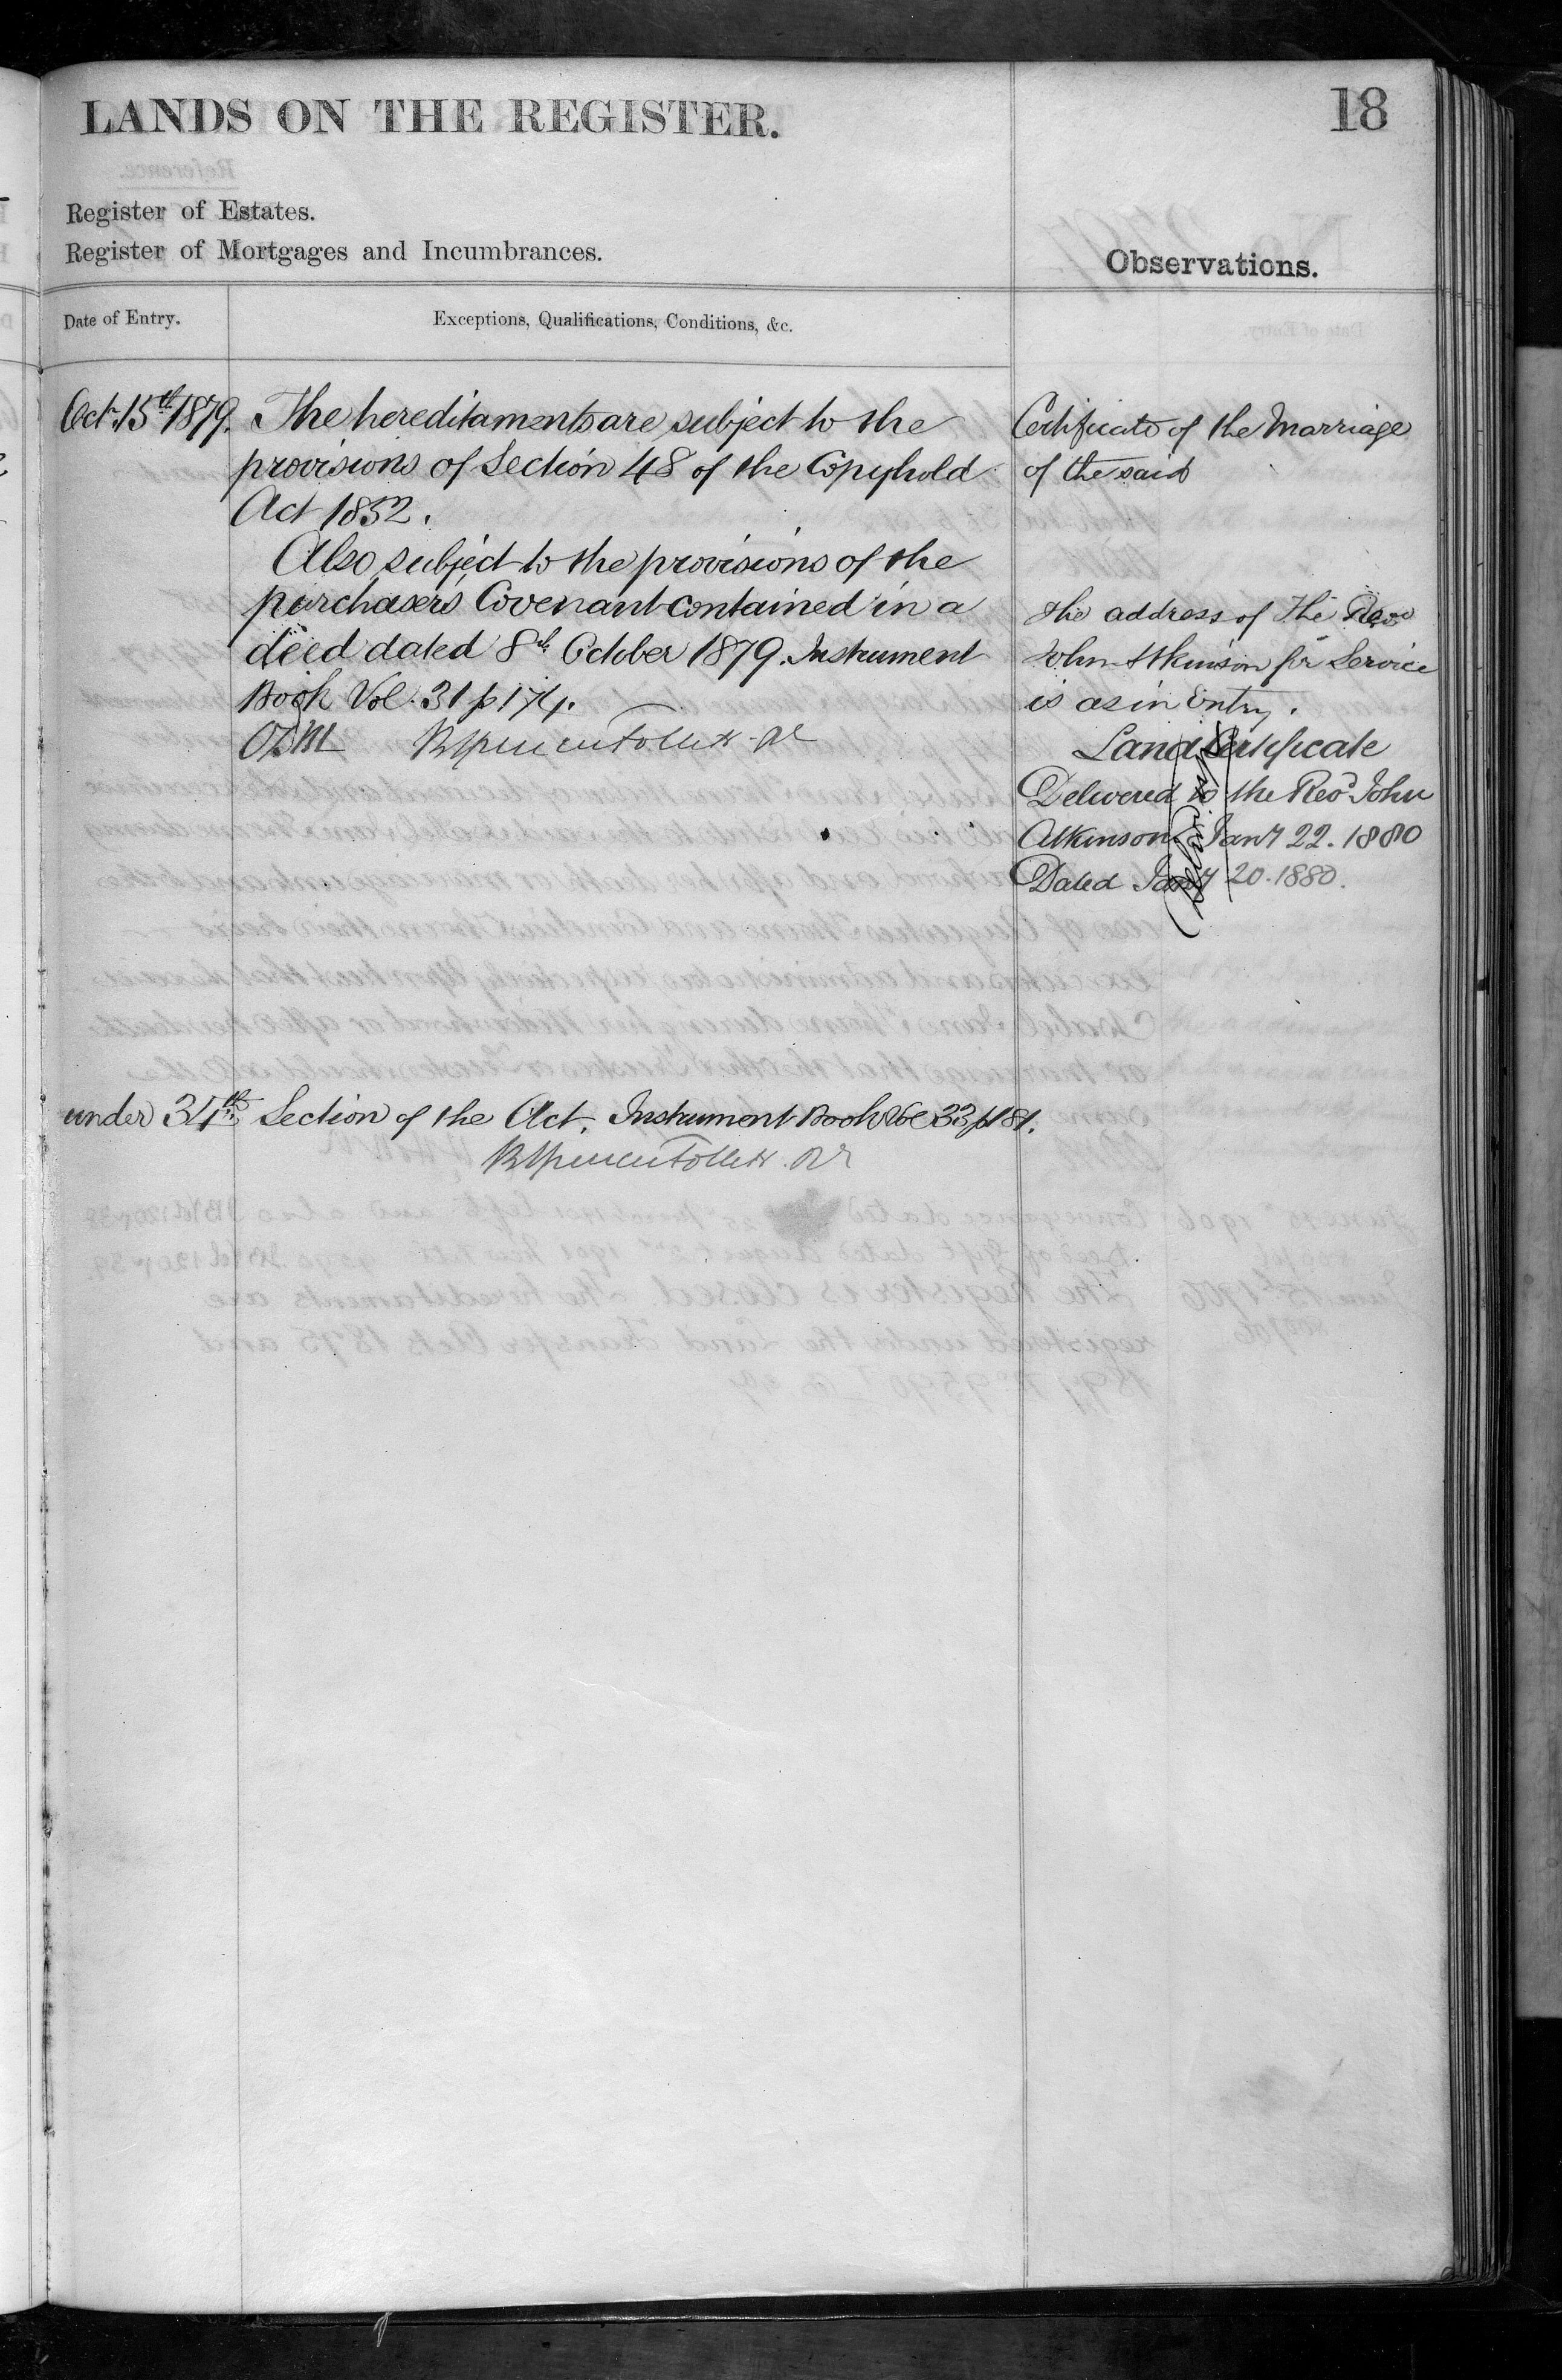 LANDS ON THE REGISTER.
18
Register of Estates.
Register of Mortgages and Incumbrances.
Observations.
Date of Entry.
Exceptions, Qualifications, Conditions, &c.
Oct. 15th 1879. The hereditaments are subject to the
provisions of Section 48 of the Copyhold
Act 1852.
Also subject to the provisions of the
purchasers Covenant contained in a
deed dated 8th October 1879. Instrument
Book Vol. 31 p 174.
under 34th Section of the Act. Instrument Book Vol 33 p 181.
Certificate of the Marriage
of the said
The address of the Revd
John Atkinson for Service
is as in Entry.
Land Certificate
Delivered to the Revd John
Atkinson Jany 22. 1880
Dated Jany 20. 1880.